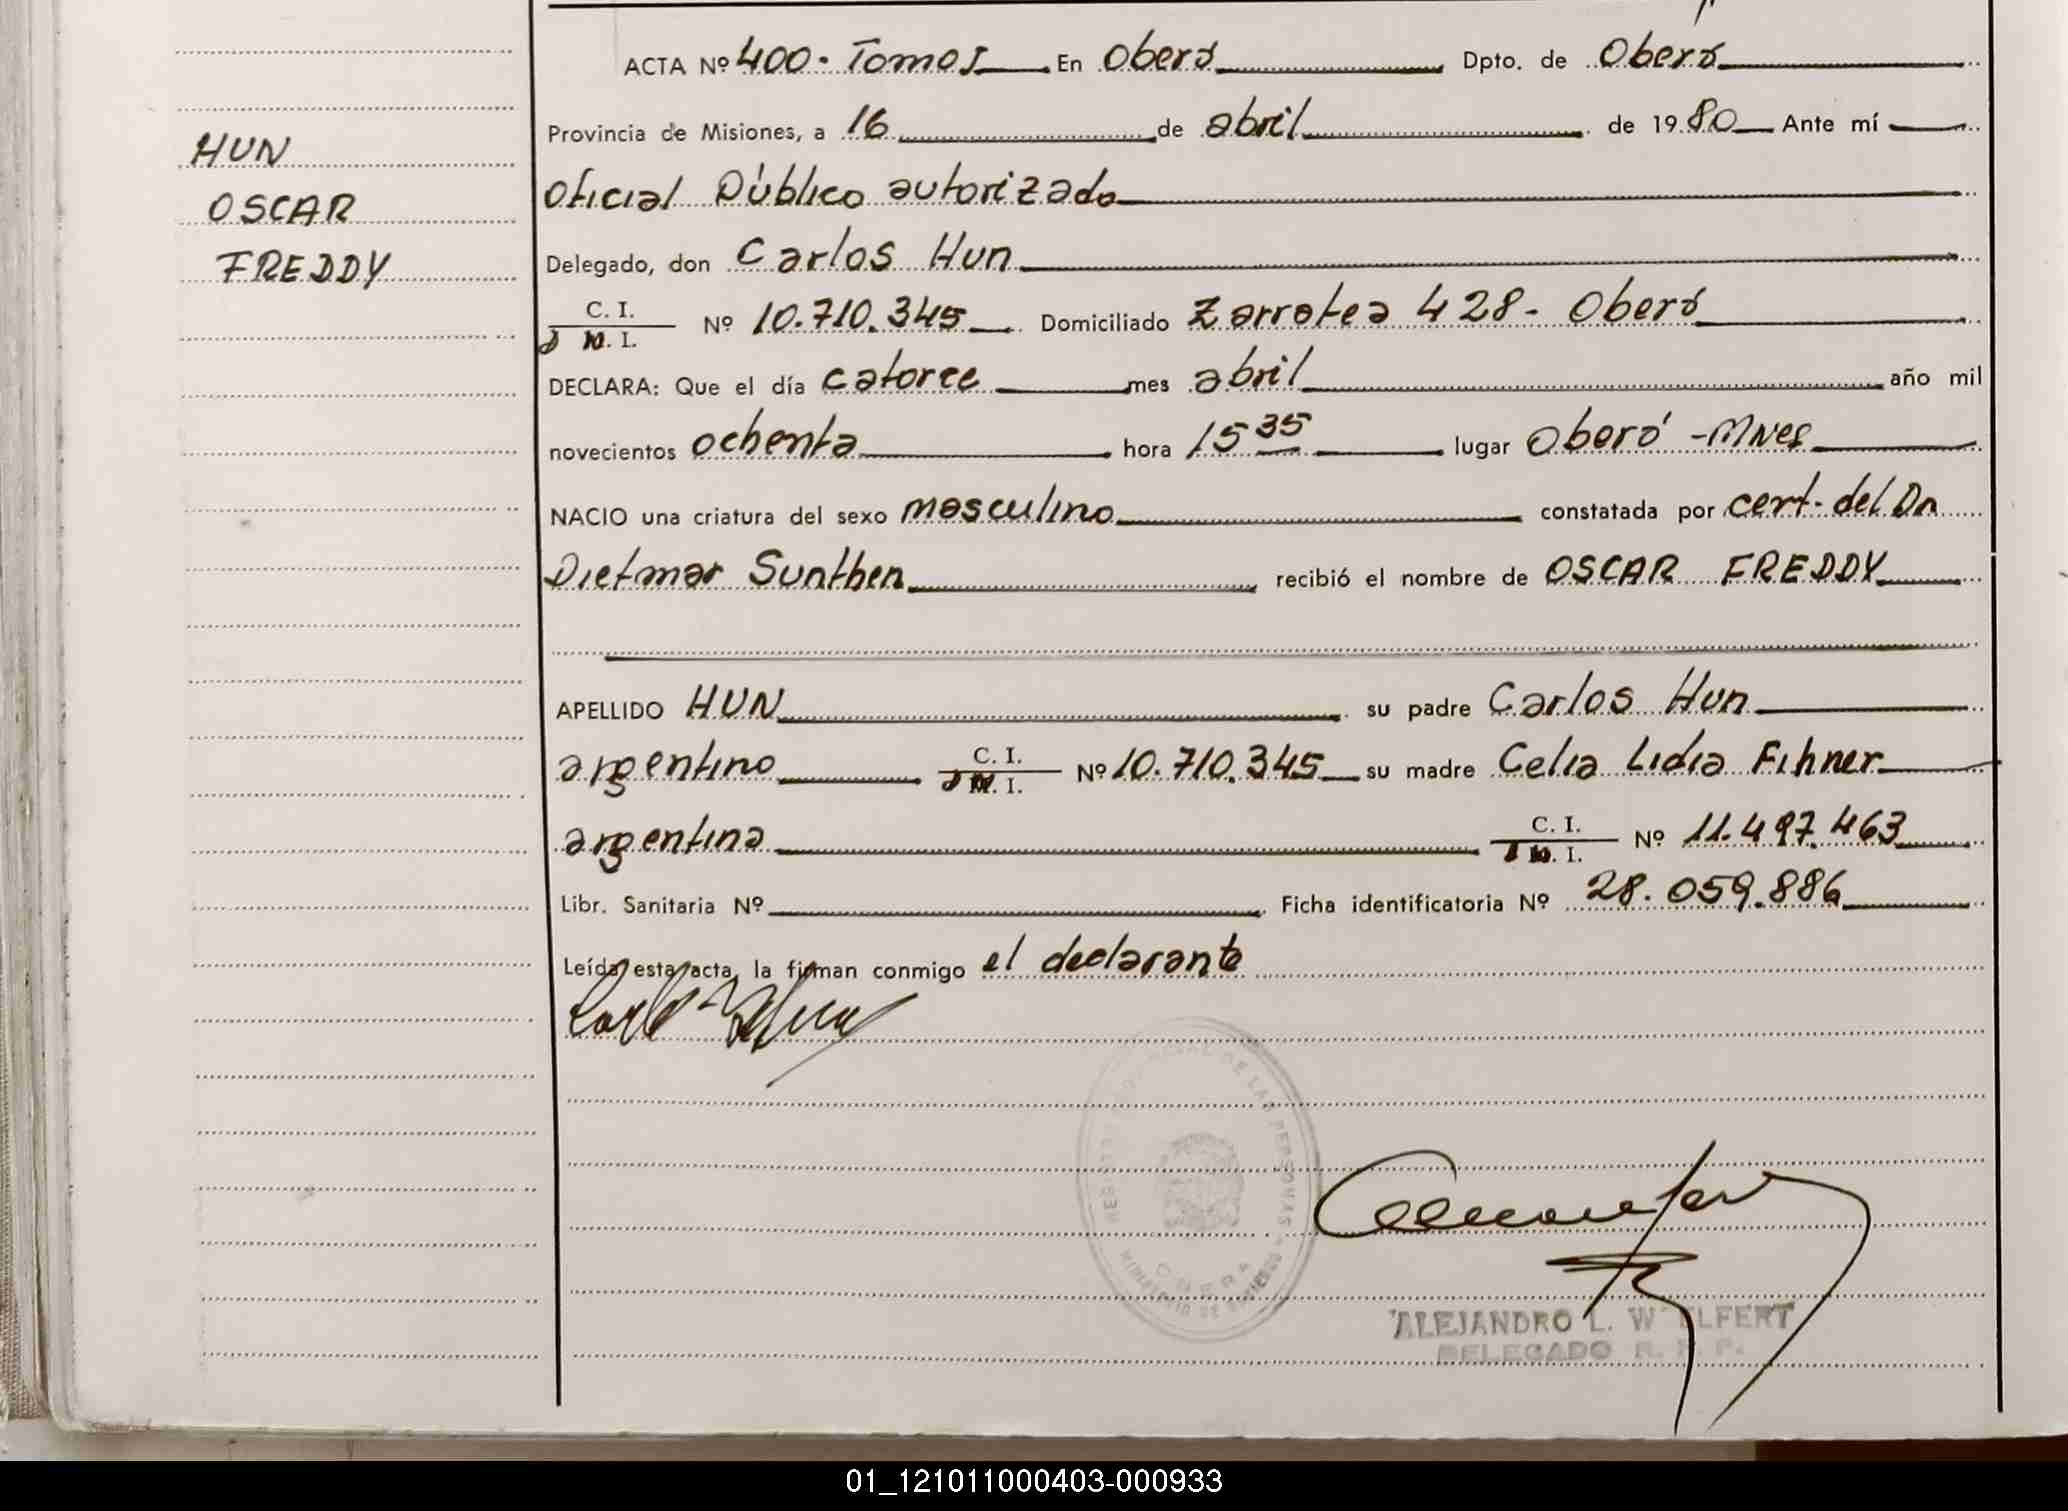 HUN
OSCAR
FREDDY
ACTA Nº 400- Tomo I En Oberá Dpto. de Oberá
Provincia de Misiones, a 16 de abril de 1980 Ante mí
Oficial Público autorizado
Delegado, don Carlos Hun
C. I.
D N. I. Nº 10.710.345 Domiciliado Zarratea 428- Oberá
DECLARA: Que el día catorce mes abril año mil
novecientos ochenta hora 15 35 lugar Oberá -Mnes
NACIO una criatura del sexo masculino constatada por cert. del Dn
Dietmar Sunthen recibió el nombre de OSCAR FREDDY
APELLIDO HUN su padre Carlos Hun
argentino C. I. D N. I. Nº 10.710.345 su madre Celia Lidia Fihner
argentina C. I. D N. I. Nº 11.497.463
Libr. Sanitaria Nº Ficha identificatoria Nº 28.059.886
Leída esta acta, la firman conmigo el declarante
DE LAS PERSONAS
MINISTERIO DE GOBIERNO
OBERA
ALEJANDRO L. W ELFERT
DELEGADO R. P. P.
01_121011000403-000933